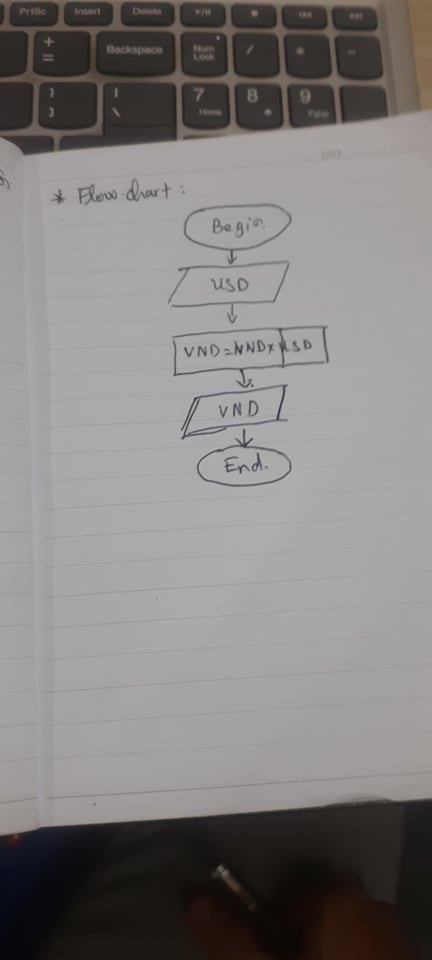 PrtSc Insert Delete
+ Backspace Num Lock / * -
=
} | 7 8 9
] \ Home PgUp
* Flow-chart:
Begin
USD
VND = VND x USD
VND
End.